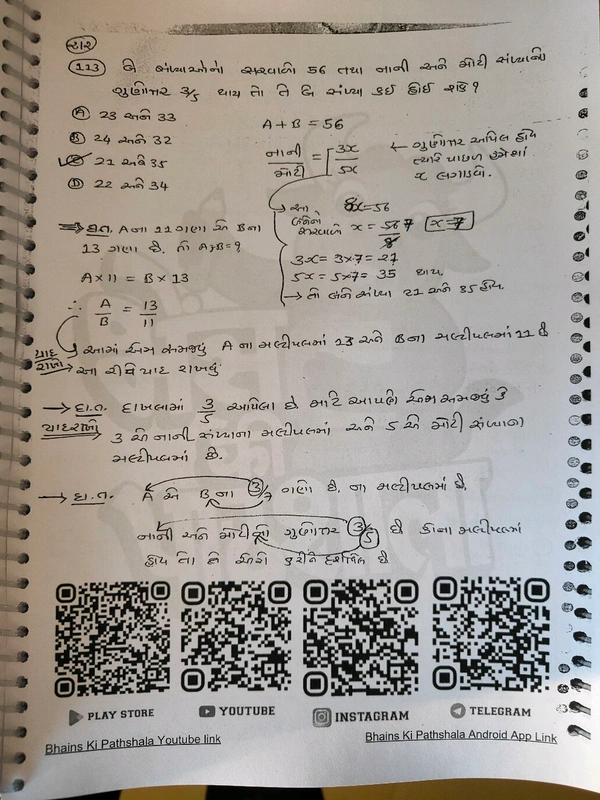 સાર
113 બે સંખ્યાઓનો સરવાળો 56 તથા નાની અને મોટી સંખ્યાનો
ગુણોત્તર 3/5 થાય તો તે બે સંખ્યા કઈ હોઈ શકે?
A 23 અને 33
B 24 અને 32
C 21 અને 35
D 22 અને 34
A + B = 56
નાની/મોટી = 3x/5x
← ગુણોત્તર આપેલ હોય
ત્યારે પાછળ હંમેશાં
x લગાડવો.
→ આ 8x = 56
બંનેનો
સરવાળો x = 56 7/8 x = 7
3x = 3×7 = 27
5x = 5×7 = 35 થાય.
→ તો બંને સંખ્યા 21 અને 35 હોય.
⇒ દા.ત. A ના 11 ગણા એ B ના
13 ગણા છે. તો A+B = ?
A × 11 = B × 13
∴ A/B = 13/11
યાદ રાખો
→ આમાં એમ સમજવું A ના મલ્ટીપલમાં 13 અને B ના મલ્ટીપલમાં 11 છે
→ આ રીતે યાદ રાખવું.
→ દા.ત. દાખલામાં 3/5 આપેલા છે માટે આપણે એમ સમજવું કે
યાદ રાખો
3 એ નાની સંખ્યાના મલ્ટીપલમાં અને 5 એ મોટી સંખ્યાના
મલ્ટીપલમાં છે.
→ દા.ત. A એ B ના 3/7 ગણો છે. ના મલ્ટીપલમાં છે.
નાની અને મોટીનો ગુણોત્તર 3/5 છે કોના મલ્ટીપલમાં
હોય તો તે એરો કરીને દર્શાવેલ છે
PLAY STORE YOUTUBE INSTAGRAM TELEGRAM
Bhains Ki Pathshala Youtube link Bhains Ki Pathshala Android App Link